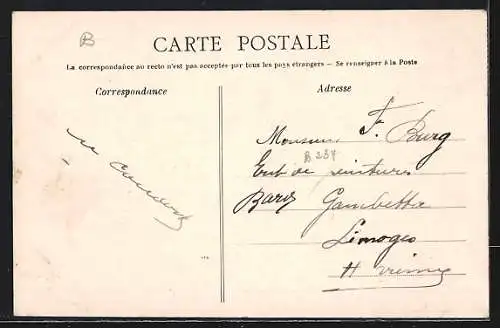 B
CARTE POSTALE
La correspondance au recto n'est pas acceptée par tous les pays étrangers — Se renseigner à la Poste
Correspondance
Adresse
Monsieur F. Burg
B 237
Ent de peintures
Gambetta
Limoges
H Vienne